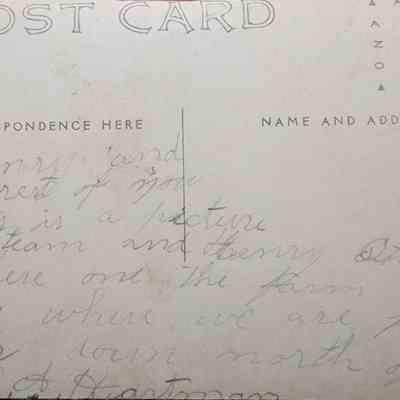 OST CARD
AZO
PONDENCE HERE
NAME AND ADD
and
rest of you
is a picture
team and Henry
ere one the farm
where we are
down north